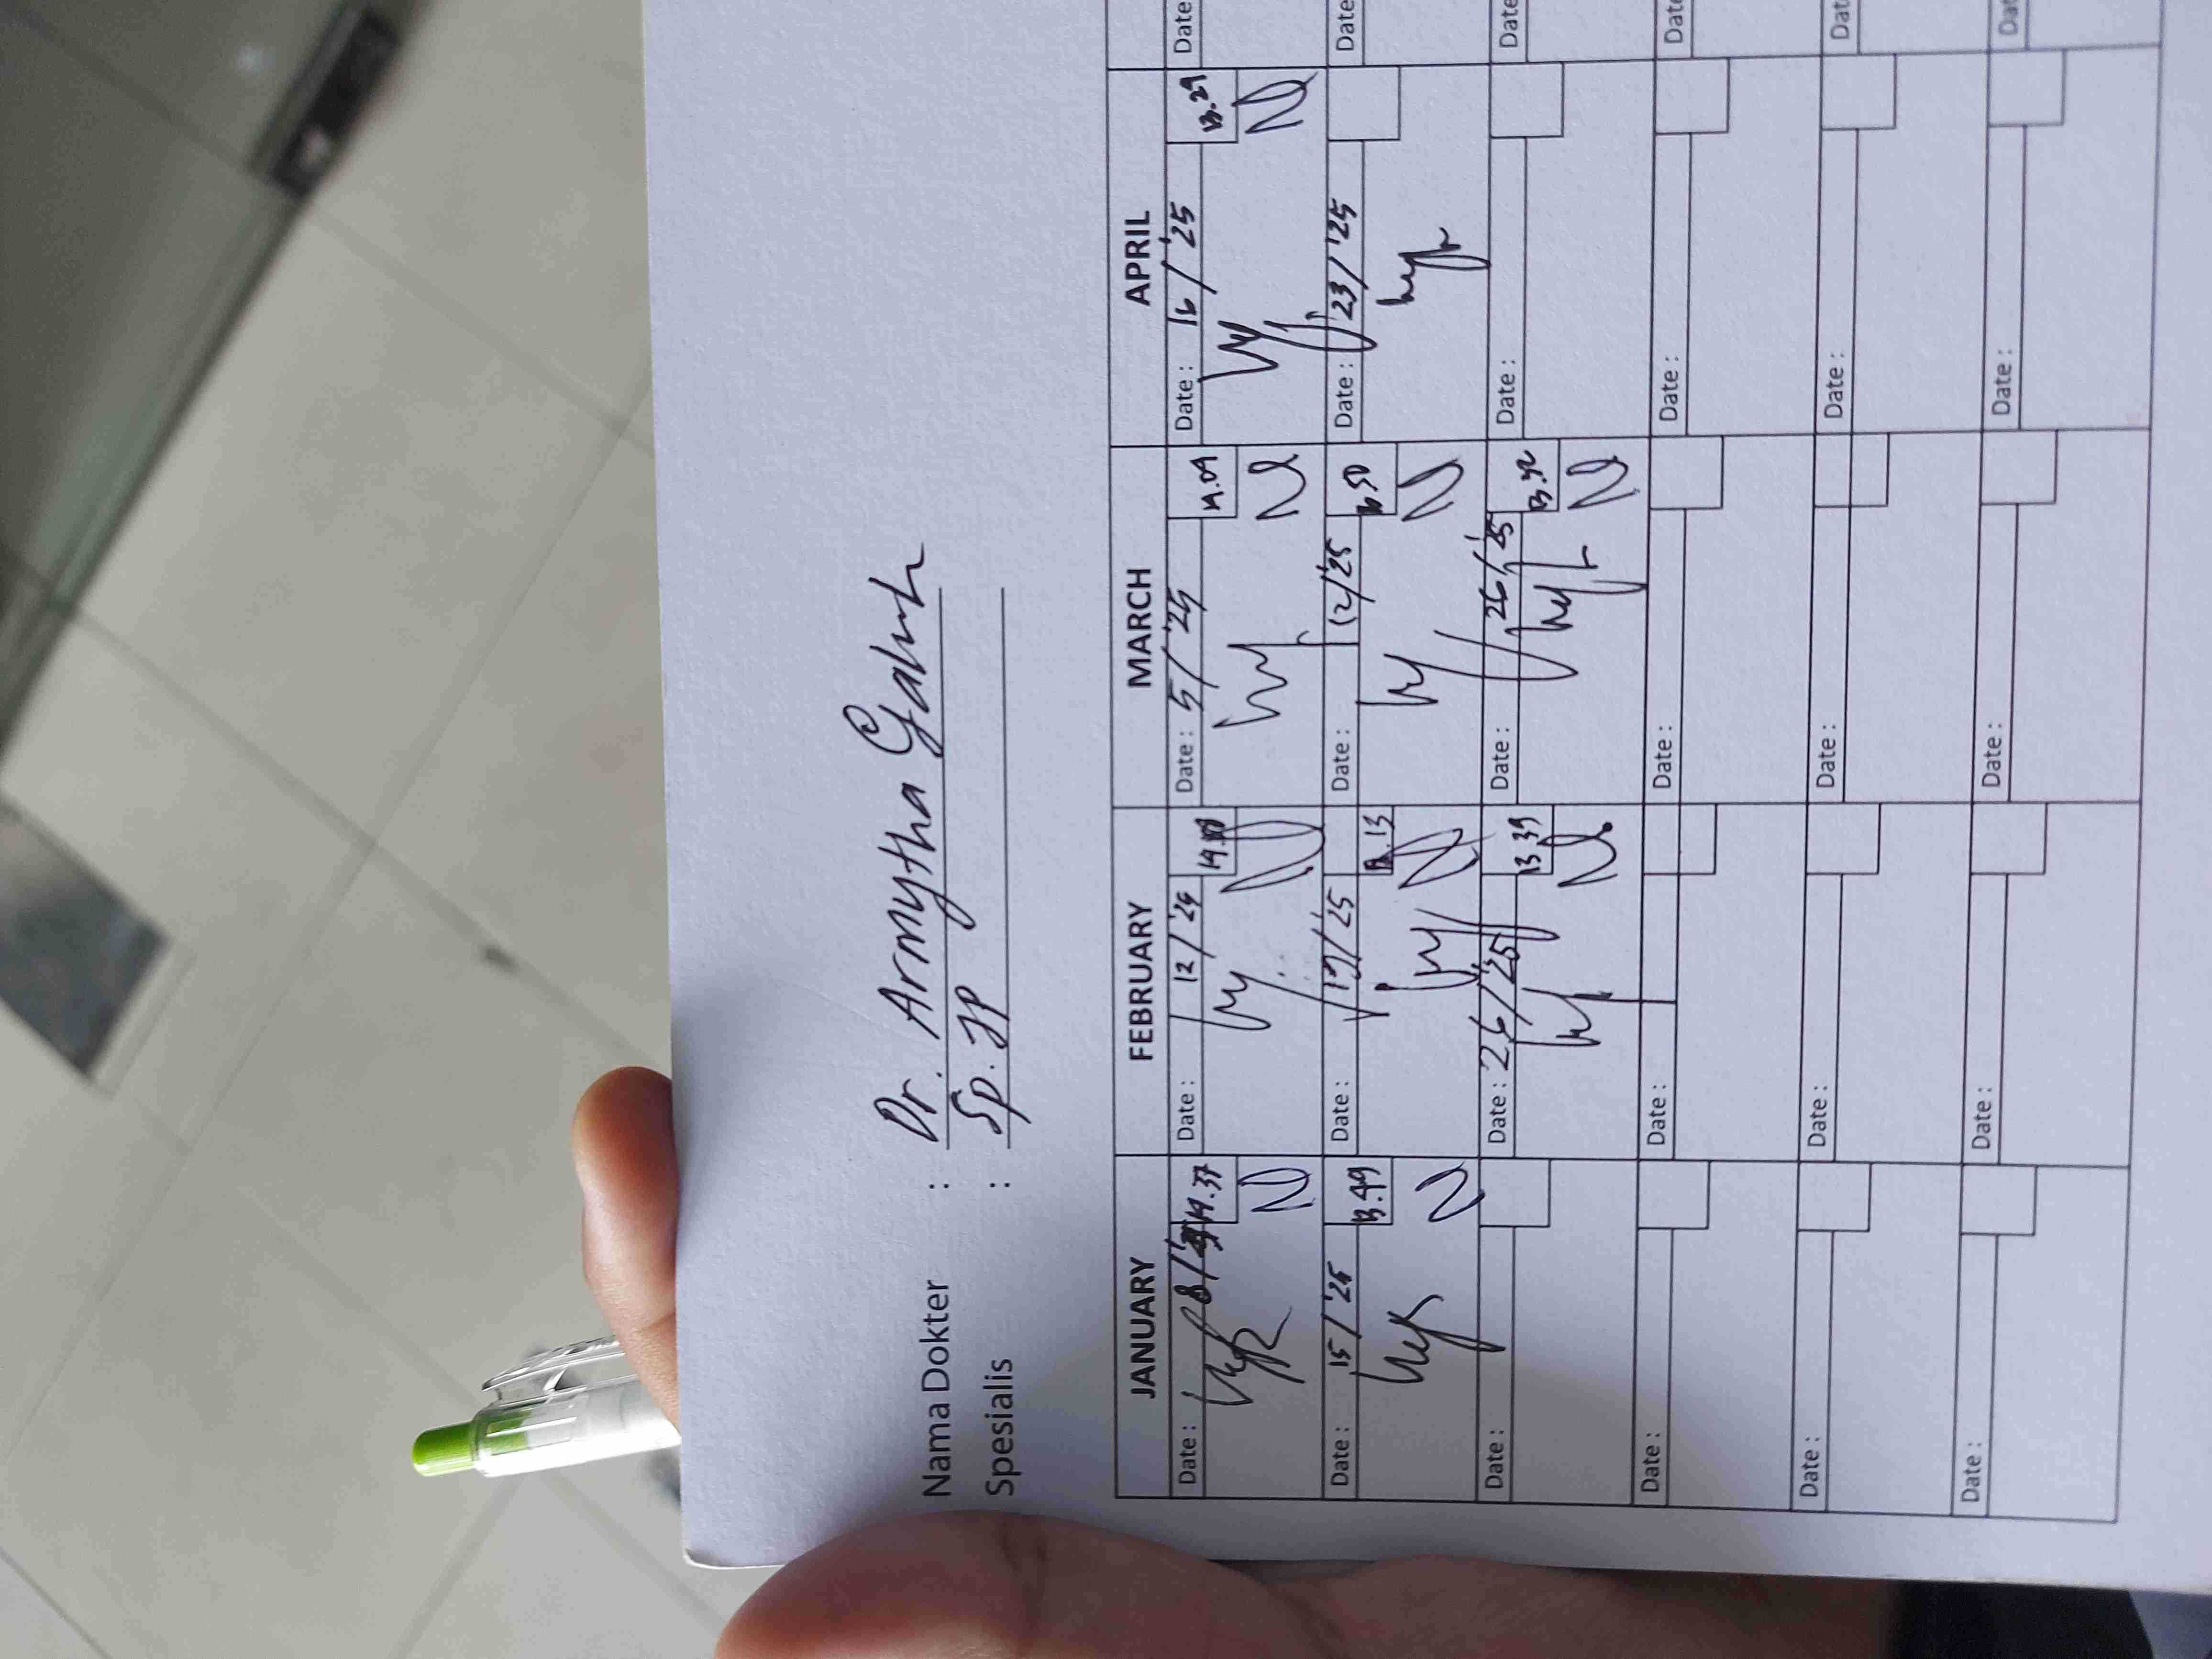 Nama Dokter : Dr. Armytha
Spesialis : Sp. JP
JANUARY FEBRUARY MARCH APRIL
Date : 8/ 14.37 Date : 12/'25 Date : 5/'25 14.09 Date : 16/'25 13.29 Date
Date : 15/'25 13.49 Date : 19/'25 13 Date : 12/'25 Date : 23/'25 Date
Date : Date : 26/'25 13.39 Date : 26/'25 13.42 Date : Date
Date : Date : Date : Date : Date
Date : Date : Date : Date : Dat
Date : Date : Date : Date : Dat